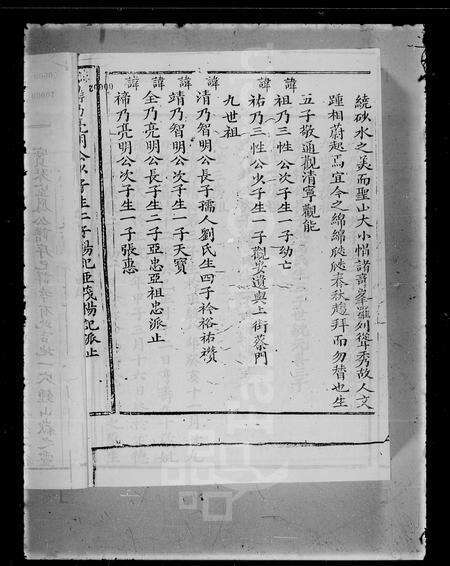 繞砂水之美而聖山大小帽諸奇峯羅列聳秀故人文
踵相蔚起焉宜今之綿綿瓞瓞春秋趨拜而勿替也生
五子敬通觀清寧觀能
諱祖乃三性公次子生一子幼亡
諱祐乃三性公少子生一子觀安遷與上街蔡門
九世祖
諱清乃智明公長子孺人劉氏生四子衿裕祐襸
諱靖乃智明公次子生一子天寶
諱全乃亮明公長子生二子亞忠亞祖忠派止
諱穧乃亮明公次子生一子張惠
乃亮明公少子生二子楊杞亞筏楊杞派止